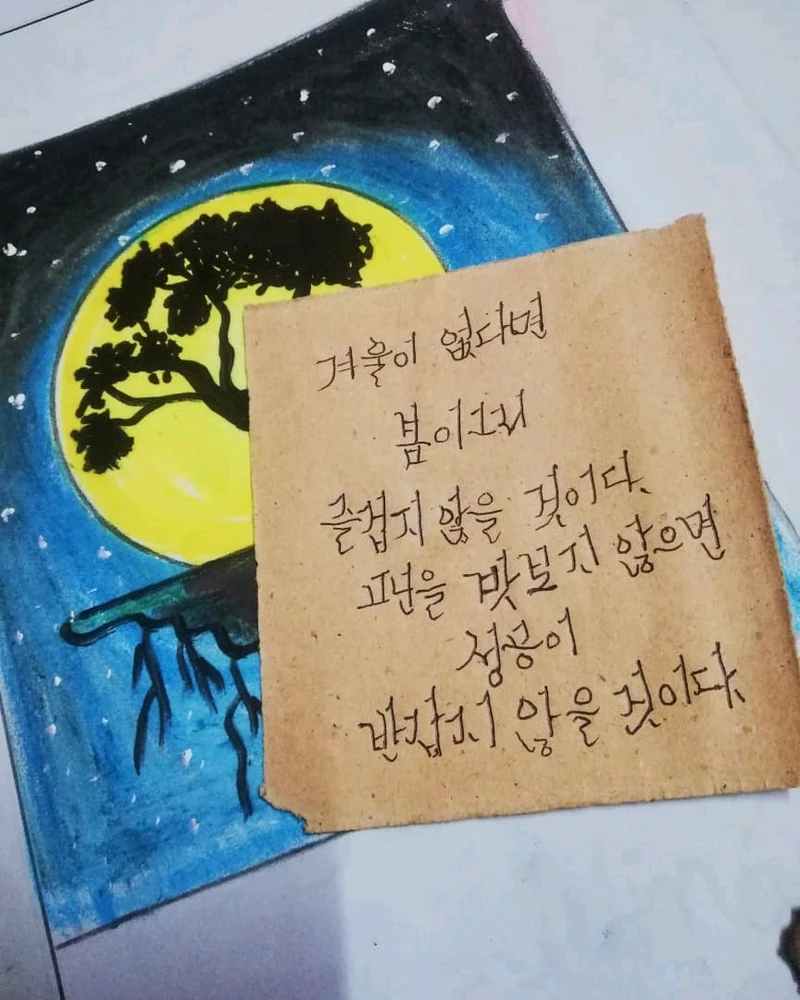 겨울이 없다면
봄이 그리
즐겁지 않을 것이다.
고난을 맛보지 않으면
성공이
반갑지 않을 것이다.